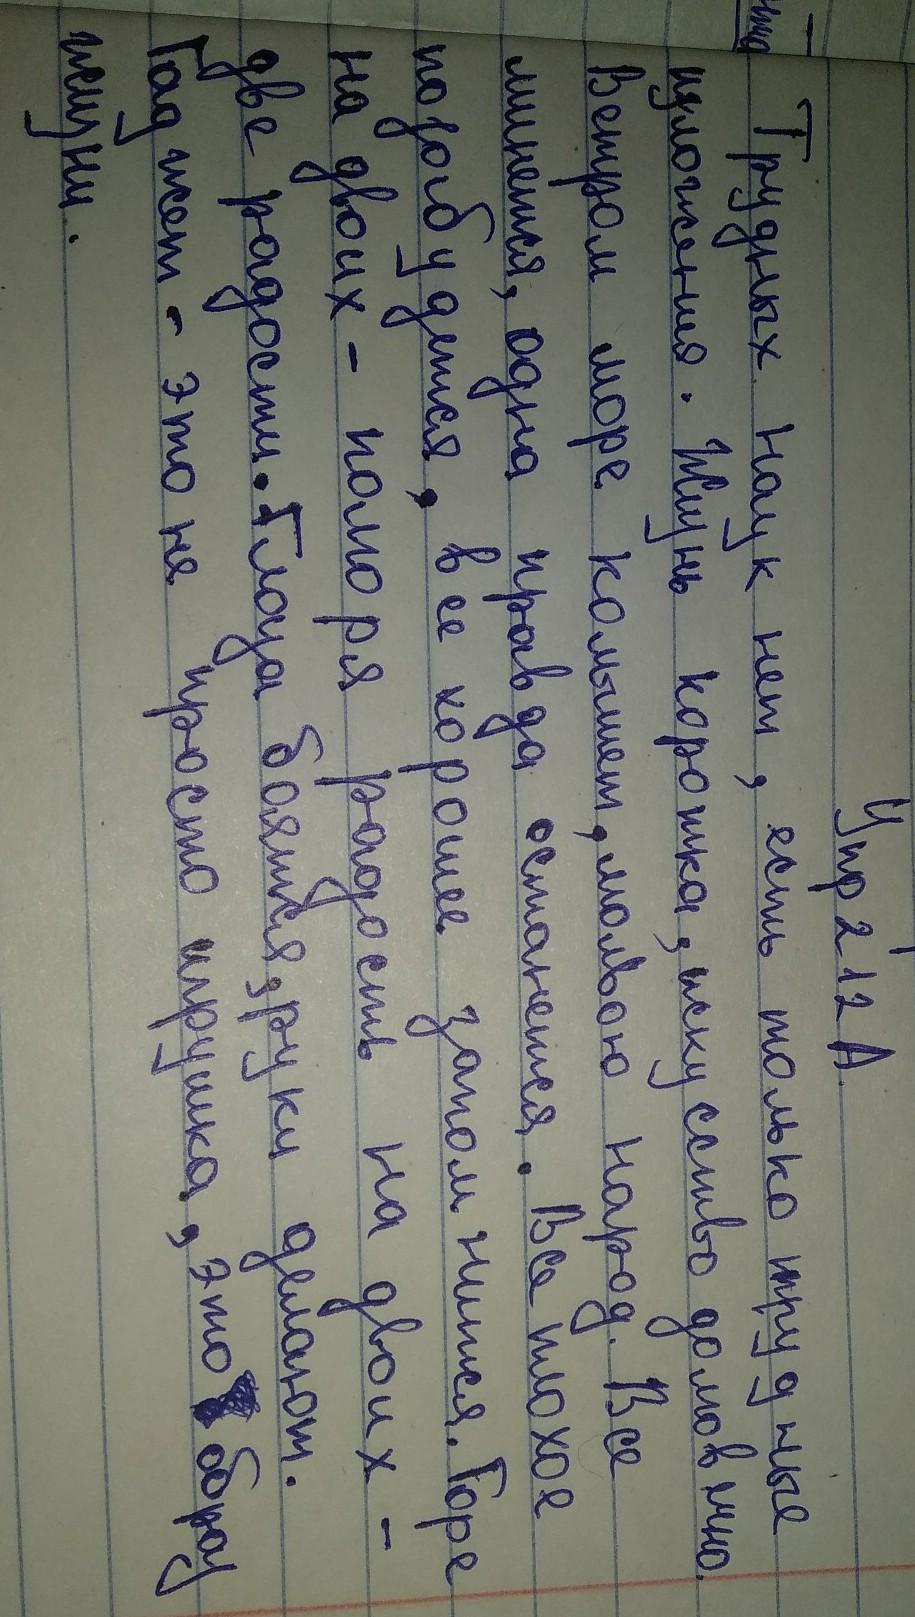 Упр 212 А.
Трудных наук нет, есть только трудные
изложения. Жизнь коротка, искусство долговечно.
Ветром море колышет, молвою народ. Все
минется, одна правда останется. Все плохое
позабудется, все хорошее запомнится. Горе
на двоих - полгоря радость на двоих -
две радости. Глаза боятся, руки делают.
Гаджет - это не просто игрушка, это образ
жизни.